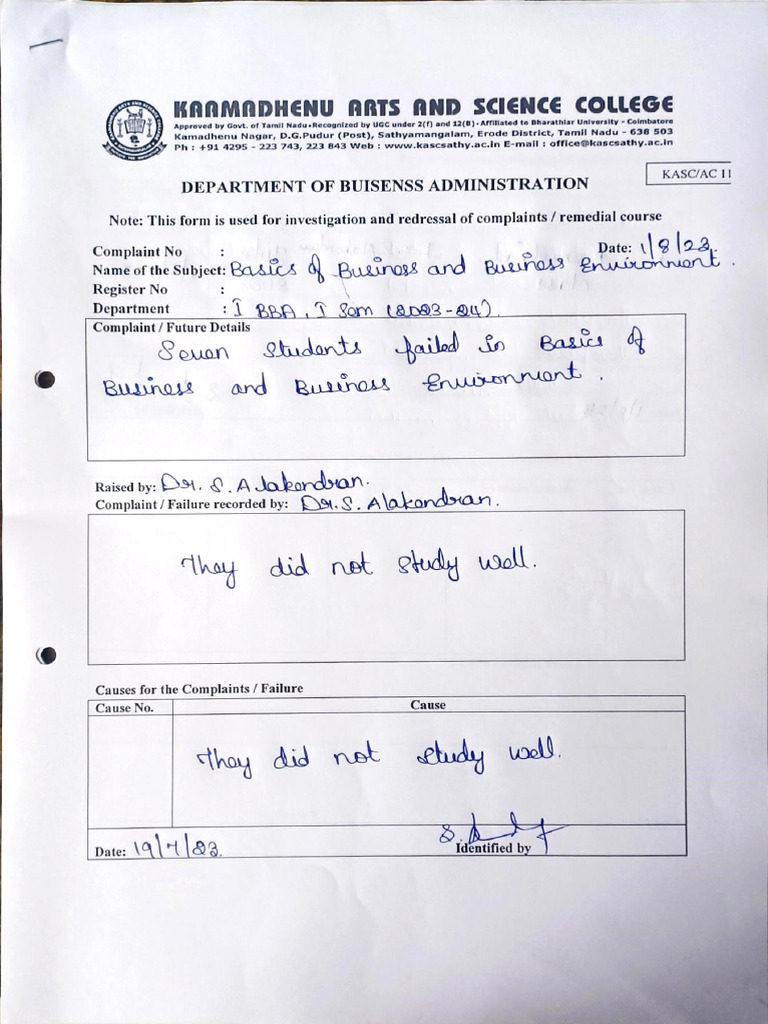 KAAMADHENU ARTS AND SCIENCE COLLEGE
Approved by Govt. of Tamil Nadu•Recognized by UGC under 2(f) and 12(B)•Affiliated to Bharathiar University - Coimbatore
Kamadhenu Nagar, D.G.Pudur (Post), Sathyamangalam, Erode District, Tamil Nadu - 638 503
Ph : +91 4295 - 223 743, 223 843 Web : www.kascsathy.ac.in E-mail : office@kascsathy.ac.in
KASC/AC 11
DEPARTMENT OF BUISENSS ADMINISTRATION
Note: This form is used for investigation and redressal of complaints / remedial course
Complaint No : Date: 1/8/23.
Name of the Subject: Basics of Business and Business Environment.
Register No :
Department : I BBA, I Sem (2023-24).
Complaint / Future Details
Seven Students failed in Basics of
Business and Business Environment.
Raised by: Dr. S. Alakendran.
Complaint / Failure recorded by: Dr. S. Alakendran.
They did not study well.
Causes for the Complaints / Failure
Cause No. Cause
They did not study well.
Date: 19/7/23.
Identified by